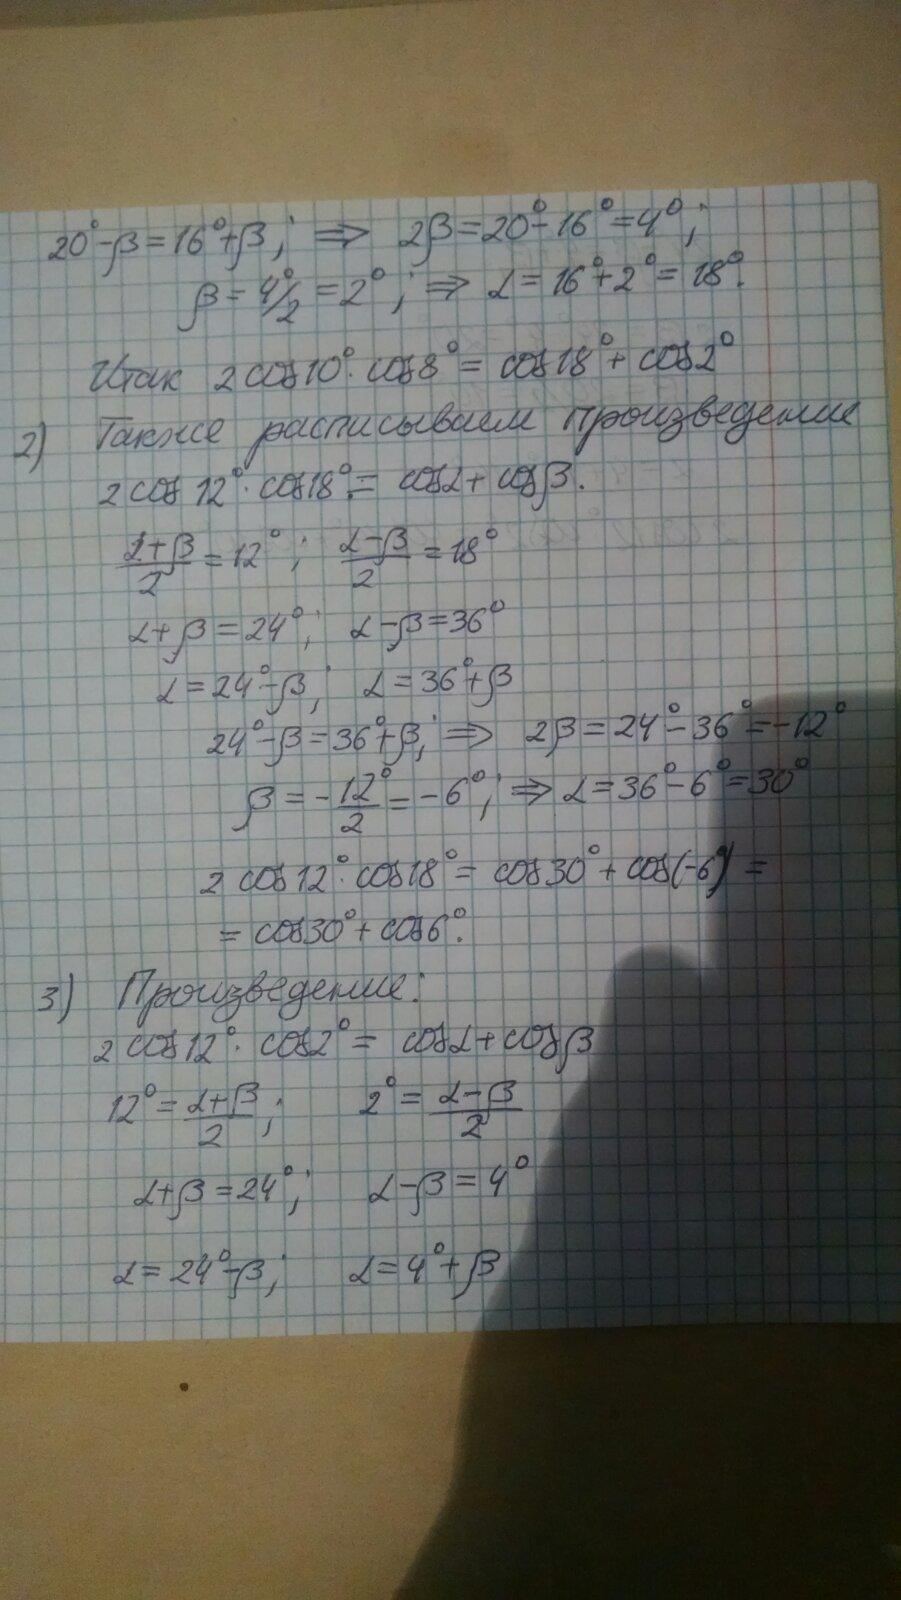 20°-β=16°+β; ⇒ 2β=20°-16°=4°;
β=4°/2=2°; ⇒ α=16°+2°=18°.
Итак 2cos10°·cos8°=cos18°+cos2°
2) Также расписываем произведение
2cos12°·cos18°=cosα+cosβ.
(α+β)/2=12°; (α-β)/2=18°
α+β=24°; α-β=36°
α=24°-β; α=36°+β
24°-β=36°+β; ⇒ 2β=24°-36°=-12°
β=-12°/2=-6°; ⇒ α=36°-6°=30°
2cos12°·cos18°=cos30°+cos(-6°)=
=cos30°+cos6°.
3) Произведение:
2cos12°·cos2°=cosα+cosβ
12°=(α+β)/2; 2°=(α-β)/2
α+β=24°; α-β=4°
α=24°-β; α=4°+β